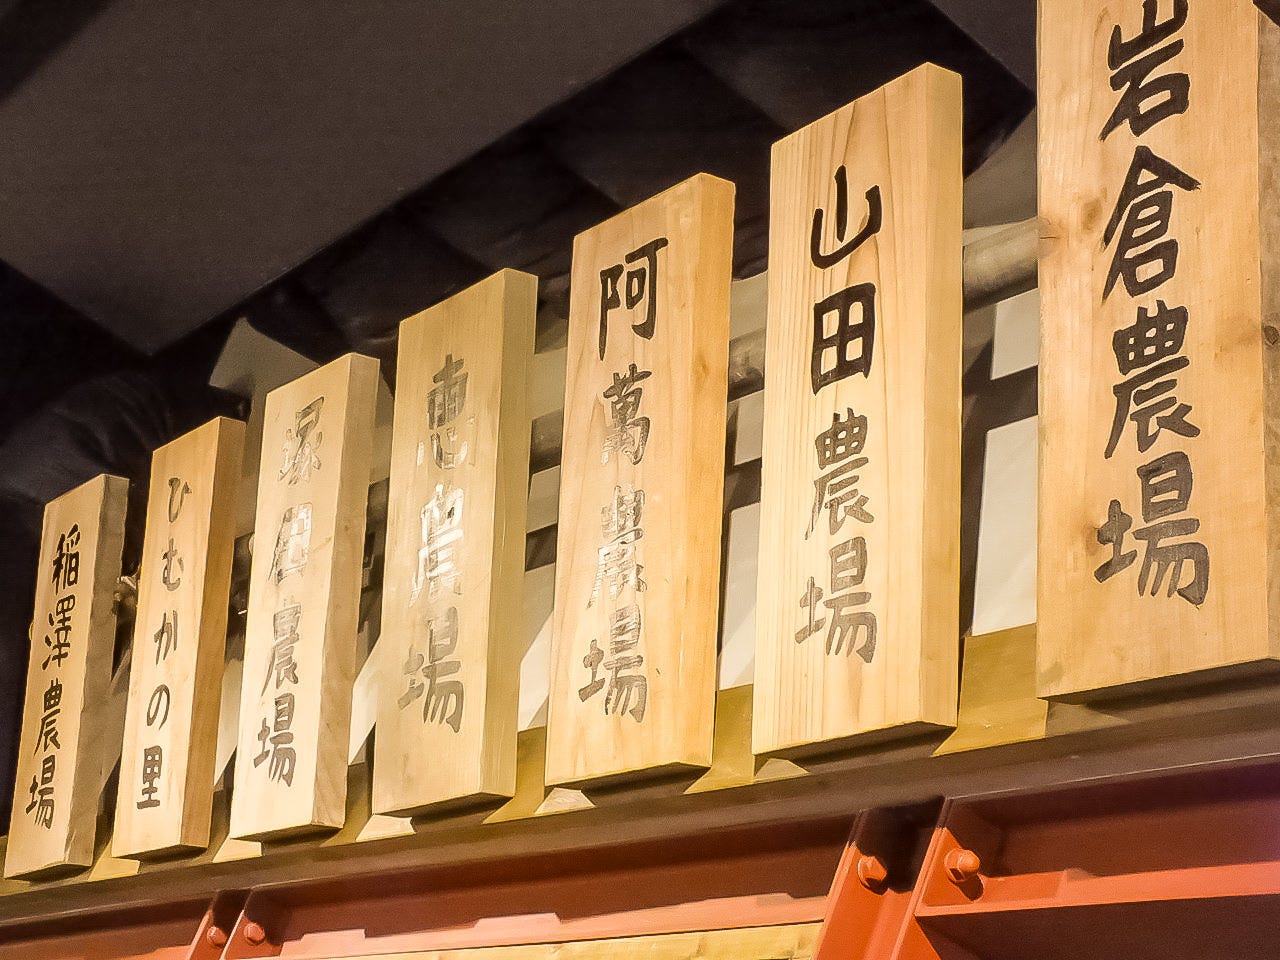 岩倉農場
山田農場
阿萬農場
恵農場
塚田農場
ひむかの里
稲澤農場